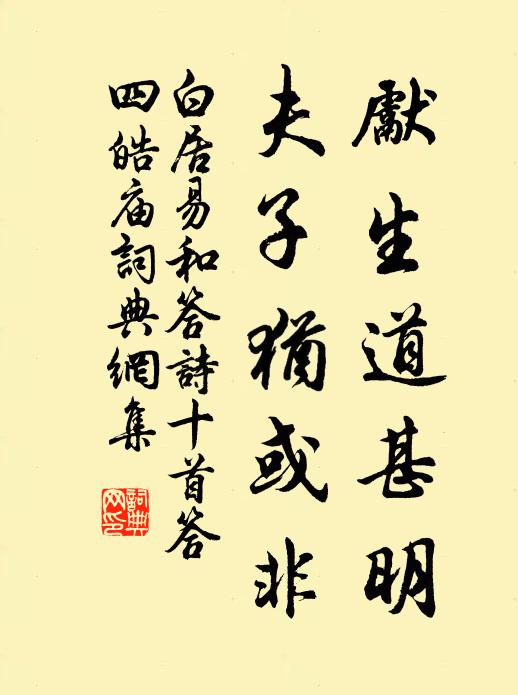 獻生道甚明
夫子猶或非
白居易和答詩十首答
四皓庙詞典網集
詞典
网印